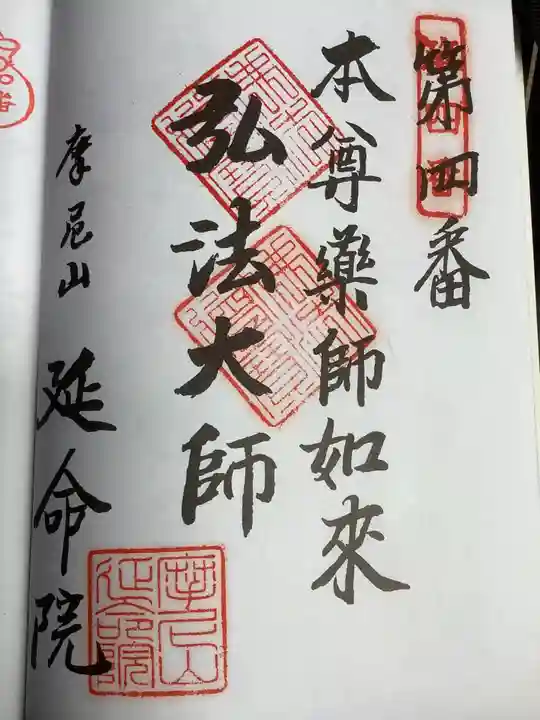 第四番
本尊藥師如來
弘法大師
摩尼山 延命院
摩尼山
延命院